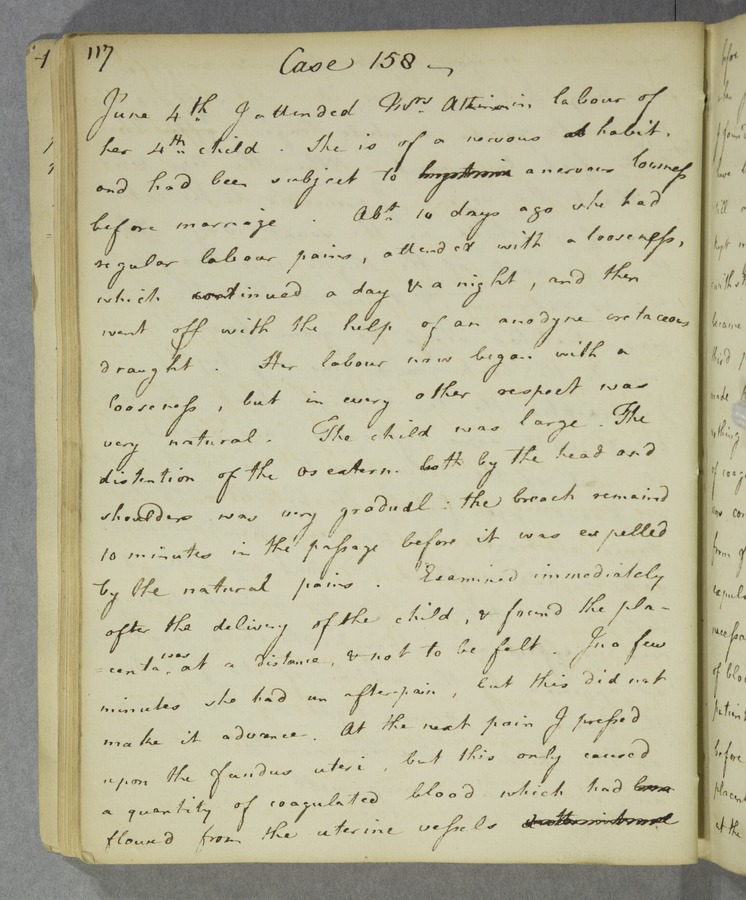 117
Case 158
June 4th I attended Mrs Atkins in labour of
her 4th child. She is of a nervous habit,
and had been subject to a nervous lowness
before marriage. Abt 10 days ago she had
regular labour pains, attended with a looseness,
which continued a day & a night, and then
went off with the help of an anodyne cretaceous
draught. Her labour now began with a
looseness, but in every other respect was
very natural. The child was large. The
distention of the os extern. both by the head and
shoulders was very gradual: the breach remaind
10 minutes in the passage before it was expelled
by the natural pains. Examined immediately
after the delivery of the child, & found the pla-
=centa was at a distance, & not to be felt. In a few
minutes she had an after-pain, but this did not
make it advance. At the next pain I pressed
upon the fundus uteri, but this only caused
a quantity of coagulated blood which had
flowed from the uterine vessels